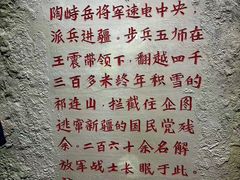 陶峙岳将军速电中央,
派兵进疆。步兵五师在
王震带领下,翻越四千
三百多米终年积雪的
祁连山,拦截住企图
逃窜新疆的国民党残
余。二百六十余名解
放军战士长眠于此。